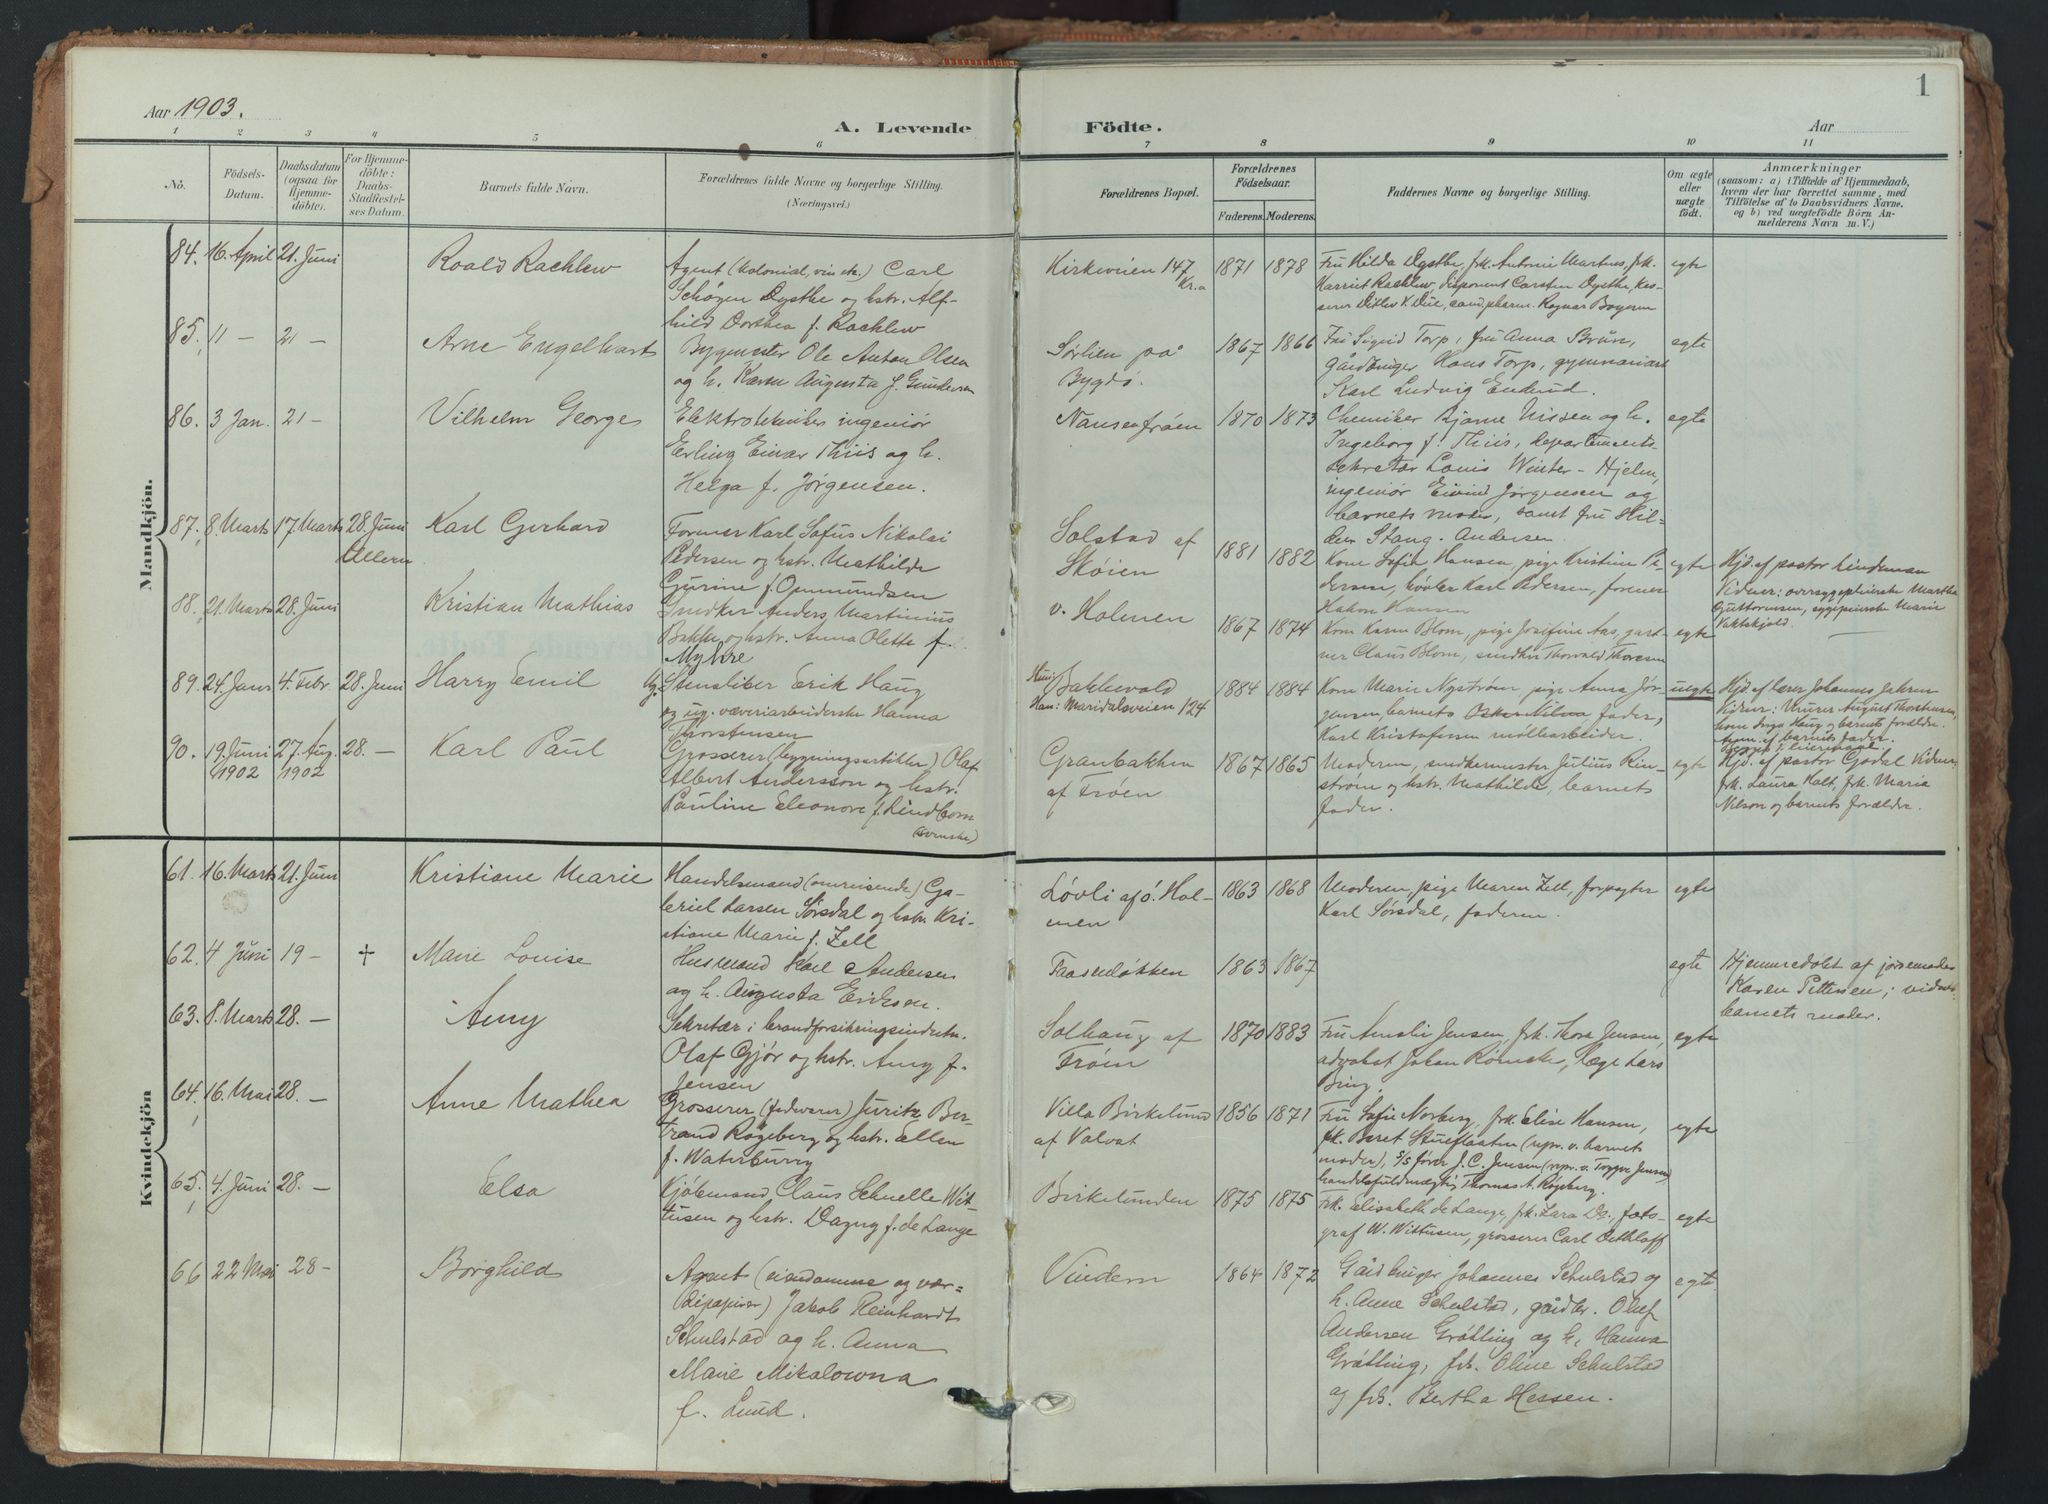 Aar 1903.
A. Levende Födte.
Aar
1
1 2 3 4 5 6 7 8 9 10 11
No.
Födsels-
Datum.
Daabsdatum
(ogsaa for
Hjemme-
döbte).
For Hjemme-
döbte:
Daabs-
Stadfæstel-
ses Datum.
Barnets fulde Navn.
Forældrenes fulde Navne og borgerlige Stilling.
(Næringsvei.)
Forældrenes Bopæl.
Forældrenes
Födselsaar.
Faderens. Moderens.
Faddernes Navne og borgerlige Stilling.
Om ægte
eller
uægte
födt.
Anmærkninger
(saasom: a) i Tilfælde af Hjemmedaab,
hvem der har forrettet samme, med
Tilföielse af to Daabsvidners Navne.
og b) ved uægtefödte Börn An-
melderens Navn m. V.)
Mandkjön.
84. 16. April 21. Juni
Roald Rachlew
Agent (kolonial, vin etc.) Carl
Schøyen Dysthe og hstr. Alf-
hild Dorthea f. Rachlew
Kirkeveien 147
Kr.a
1871 1878
Fru Hilda Dysthe, frk. Antonie Martens, frk.
Harriet Rachlew, disponent Carsten Dysthe, kas-
serer Ditlev K. Due, cand. pharm. Ragnar
egte
85. 11 — 21 —
Arne Engelhart
Bygmester Ole Anton Olsen
og h. Karen Augusta f. Gundersen
Sørlien på
Bygdö.
1867 1866
Fru Sigrid Torp, fru Anna Brün,
gårdbruger Hans Torp, gymnasiast
Karl Ludvig Enerud.
egte
86. 3 Jan. 21 —
Vilhelm George
Elektroteknikes ingeniör
Erling Einar Thiis og h.
Helga f. Jørgensen.
Nansenfröen
1870 1873
Chemiker Bjarne Nissen og h.
Ingeborg f. Thiis, departements-
sekretær Louis Winter-Hjelm,
ingeniör Eivind Jørgensen og
barnets moder, samt fru Hil-
dur Stang-Andersen.
egte
87. 8. Marts 17. Marts 28. Juni
Ullern
Karl Gerhard
Former Karl Sofus Nikolai
Pedersen og hstr. Mathilde
Gurine f. Ommundsen
Solstad af
Skøien
1881 1882
Kone Sofie Hansen, pige Kristine Pe-
dersen, Karl Pedersen, former
Hakon Hansen
egte
Hjd. af pastor Lindeman
Vidner: oversygepleierske Martha
Guttormsen, sygepleierske Marie
Vaktskjold.
88. 21. Marts 28. Juni
Kristian Mathias
Snedker Anders Martinius
Bakke og hstr. Anna Olette f.
Myhre
v. Holmen
1867 1874
Kone Karen Blom, pige Josifine Aas, gart-
ner Claus Blom, snedker Thorvald Thoresen
egte
—
89. 24. Janr 4. Febr. 28. Juni
Harry Emil
Ug. Stensliber Erik Haug
og ug. væveriarbeiderske Hanna
Thorstensen
Hun: Bakkevold
Han: Maridalsveien 124
1884 1884
Kone Marie Nystrøm, pige Anna Jör-
gensen, barnets fader,
Karl Kristofersen møllearbeider.
uegte
Hjd. af lærer Johannes Jehren
Vidner: Murer August Thorstensen,
kone Inga Haug og barnets forældre.
Anm. af barnets fader.
90. 19. Juni 27. Aug. 28. —
1902 1902
Karl Paul
Grosserer (bygningsartikler) Olaf
Albert Andersson og hstr.
Pauline Eleonore f. Lindbom
(svenske)
Granbakken
af Frøen
1867 1865
Moderen, snedkermester Julius Rin-
ström og hstr. Mathilde, barnets
fader.
egte
Hjd. af pastor Gjødal Vidner:
frk. Laura Holt, frk. Maria
Nilson og barnets forældre.
Kvindekjön
61. 16. Marts 21. Juni
Kristiane Marie
Handelsmand (omreisende) Ga-
briel Larsen Sørsdal og hstr. Kri-
stiane Marie f. Zell
Løvli af ö. Hol-
men
1863 1868
Moderen, pige Maren Zell, forpagter
Karl Sörsdal, faderen.
egte
62. 4 Juni 19 — †
Marie Louise
Husmand Karl Andersen
og h. Augusta Eriksen.
Frasenløkken
1863 1867
egte
Hjemmedøbt af jordemoder
Karen Pettersen; vidne:
barnets moder.
63. 8. Marts 28. —
Amy
Sekretær i brandforsikringsindretn.
Olaf Gjör og hstr. Amy f.
Jensen
Solhaug af
Frøen
1870 1883
Fru Amalie Jensen, frk. Thora Jensen,
advokat Johan Rømcke, læge Lars
Bing.
egte
64. 16. Mai 28. —
Anne Mathea
Grosserer (fedevarer) Juritz Ber-
trand Røgeberg og hstr. Ellen
f. Waterbury
Villa Birkelund
af Volvat
1856 1871
Fru Sofie Norberg, frk. Elise Hansen,
frk. Beret Stueflaaten (repr. v. barnets
moder), S/S fører J. C. Jensen (repr. v. Trygve Jensen)
handelsfuldmægtig Thomas A. Røgeberg.
egte
65. 4. Juni 28. —
Elsa
Kjöbmand Claus Schnelle Wit-
tusen og hstr. Dagny f. de Lange
Birkelunden
1875 1875
Frk. Elisabeth de Lange, frk. Lara Do., foto-
graf W. Wittusen, grosserer Carl Dethloff
egte
66 22 Mai 28 —
Borghild
Agent (eiendomme og vær-
dipapirer) Jakob Reinhardt
Schulstad og h. Anna
Marie Mikalowna
f. Lund.
Vindern
1864 1872
Gårdbruger Johannes Schulstad og
h. Anne Schulstad, gårdbr. Oluf
Andersen Grøtting og h. Hanna
Grøtting, frk. Oline Schulstad
og frk. Bertha Hessen.
egte.